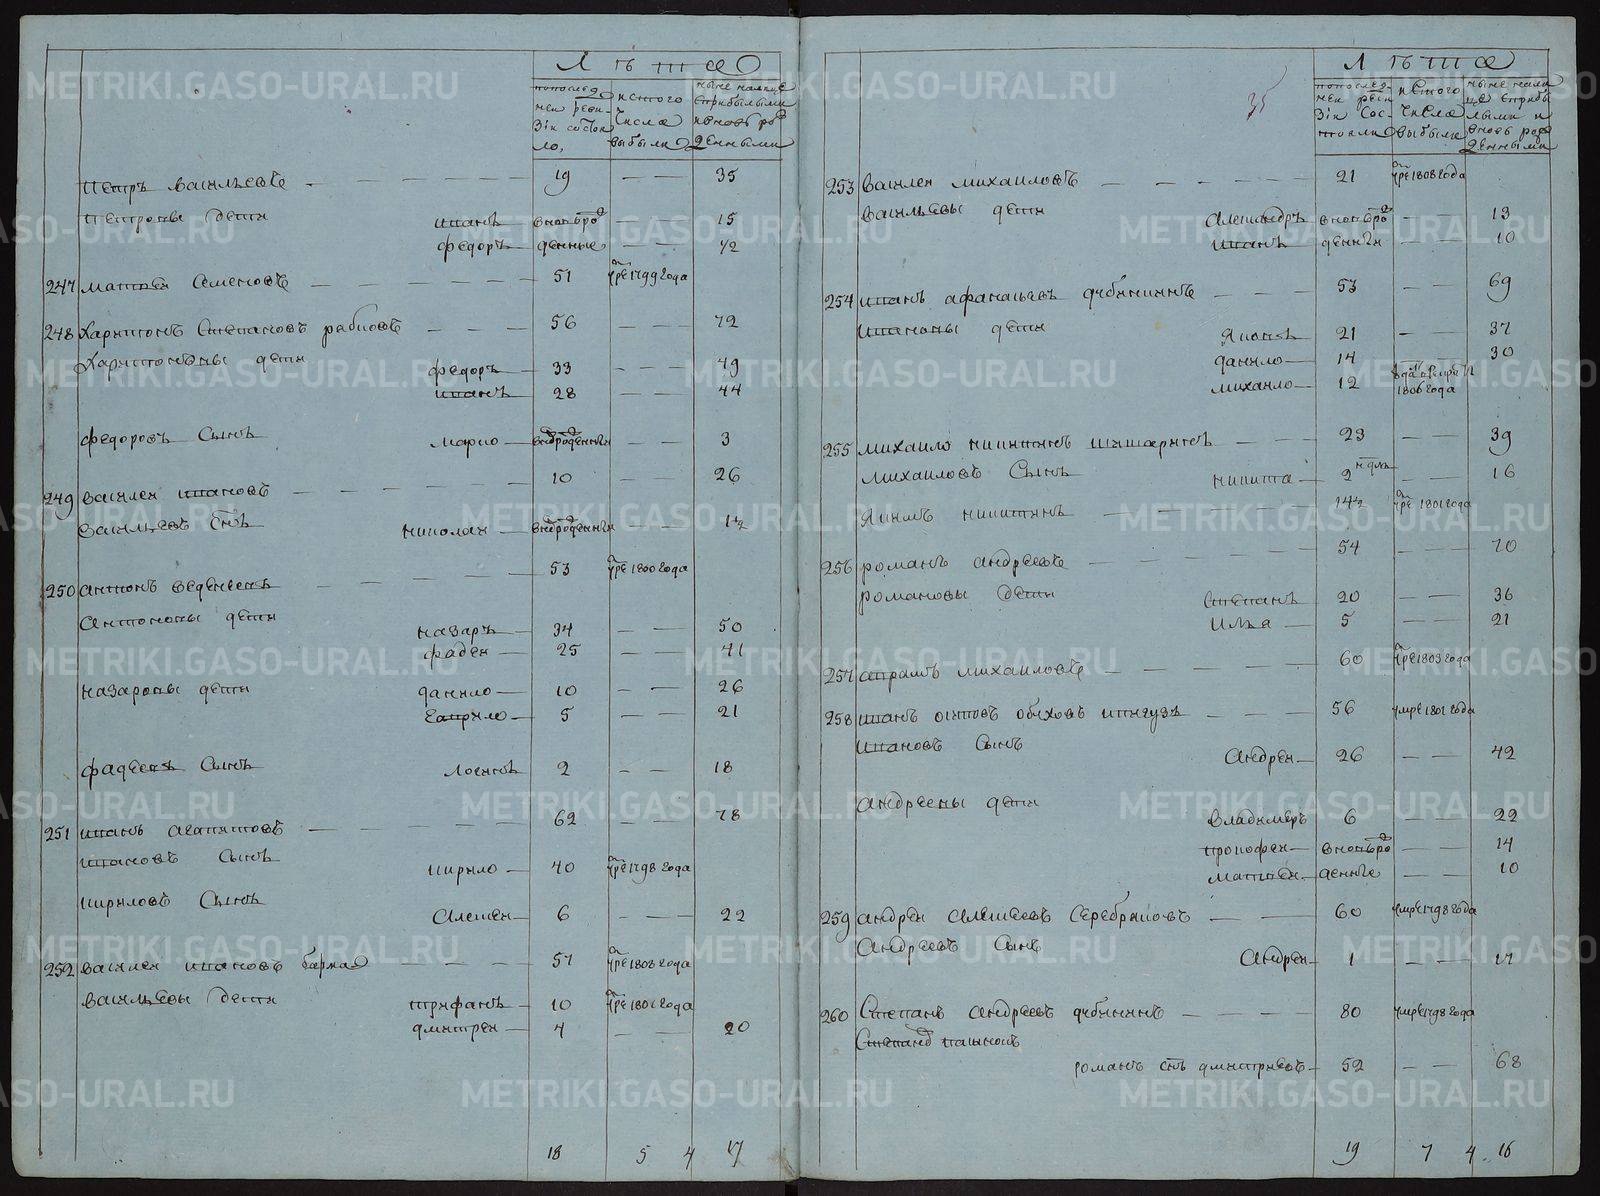 Лѣта
попоследней ревизiи состояло,
истого числа выбыли
ныне налице сприбылыми ивновь рожденными
Петръ васильевъ — 19 — 35
Петровы дети иванъ вновьрож — — 15
федоръ денные — — 12
247 матвей Семеновъ — 51 умре 1799 года
248 Харитонъ Степановъ рябковъ — 56 — 72
Харитоновы дети федоръ 33 — — 49
иванъ 28 — — 44
федоровъ Сынъ марко — вновьрожденный — — 3
249 василей ивановъ — 10 — 26
васильевъ Снъ николай — вновьрожденный — — 12
250 антонъ веденеевъ — 53 умре 1800 года
Антоновы дети назаръ — 34 — — 50
фадей — 25 — — 41
назаровы дети данило — 10 — — 26
гаврило — 5 — — 21
фадеевъ Сынъ логинъ 2 — — 18
251 иванъ агапитовъ — 62 — 78
ивановъ Сынъ кирило — 40 умре 1798 года
кириловъ Сынъ Алексей — 6 — — 22
252 василей ивановъ — 57 умре 1808 года
васильевы дети трифанъ — 10 умре 1801 года
дмитрей — 4 — — 20
18 5 4 17
35
Лѣта
попоследней ревизiи состояли
исого числа выбыли
ныне налице сприбылыми и вновь рожденными
253 василей михаиловъ — 21 умре 1808 года
васильевы дети Александръ вновьрож — — 13
иванъ денныи — — 10
254 иванъ афанасьевъ дубининъ — 53 — 69
ивановы дети Яковъ 21 — — 37
данило — 14 — — 30
михаило — 12 1806 года
255 михаило никитинъ — 23 — — 39
михаиловъ Сынъ никита — 2 недѣль — 16
Якимъ никитинъ — 142 умре 1801 года
256 романъ андреевъ — 54 — — 70
романовы дети Степанъ 20 — — 36
илья — 5 — — 21
257 авраамъ михаиловъ — 60 умре 1803 года
258 иванъ осиповъ — 56 умре 1801 года
ивановъ Сынъ Андрей — 26 — — 42
андреевы дети
владимеръ 6 — — 22
прокофей — вновьрож — — 14
матвей — денные — — 10
259 андрей алексеевъ Серебряковъ — 60 умре 1798 года
Андреевъ Сынъ Андрей — 1 — — 17
260 Степанъ андреевъ дубининъ — 80 умре 1798 года
романъ снъ дмитриевъ — 52 — — 68
19 7 4 16
METRIKI.GASO-URAL.RU